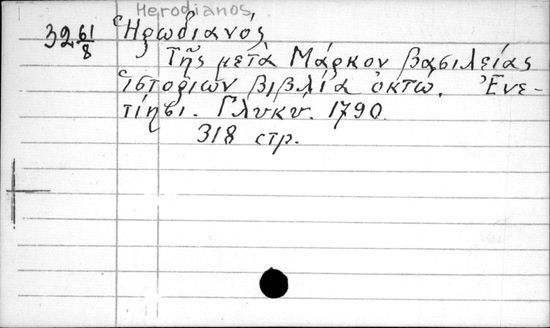 Herodianos
32 61/8 Ἡρωδιανός
Τῆς μετὰ Μάρκον βασιλείας
ἱστοριῶν βιβλία ὀκτώ. Ἐνε-
τίησι. Γλυκύ. 1790.
318 стр.